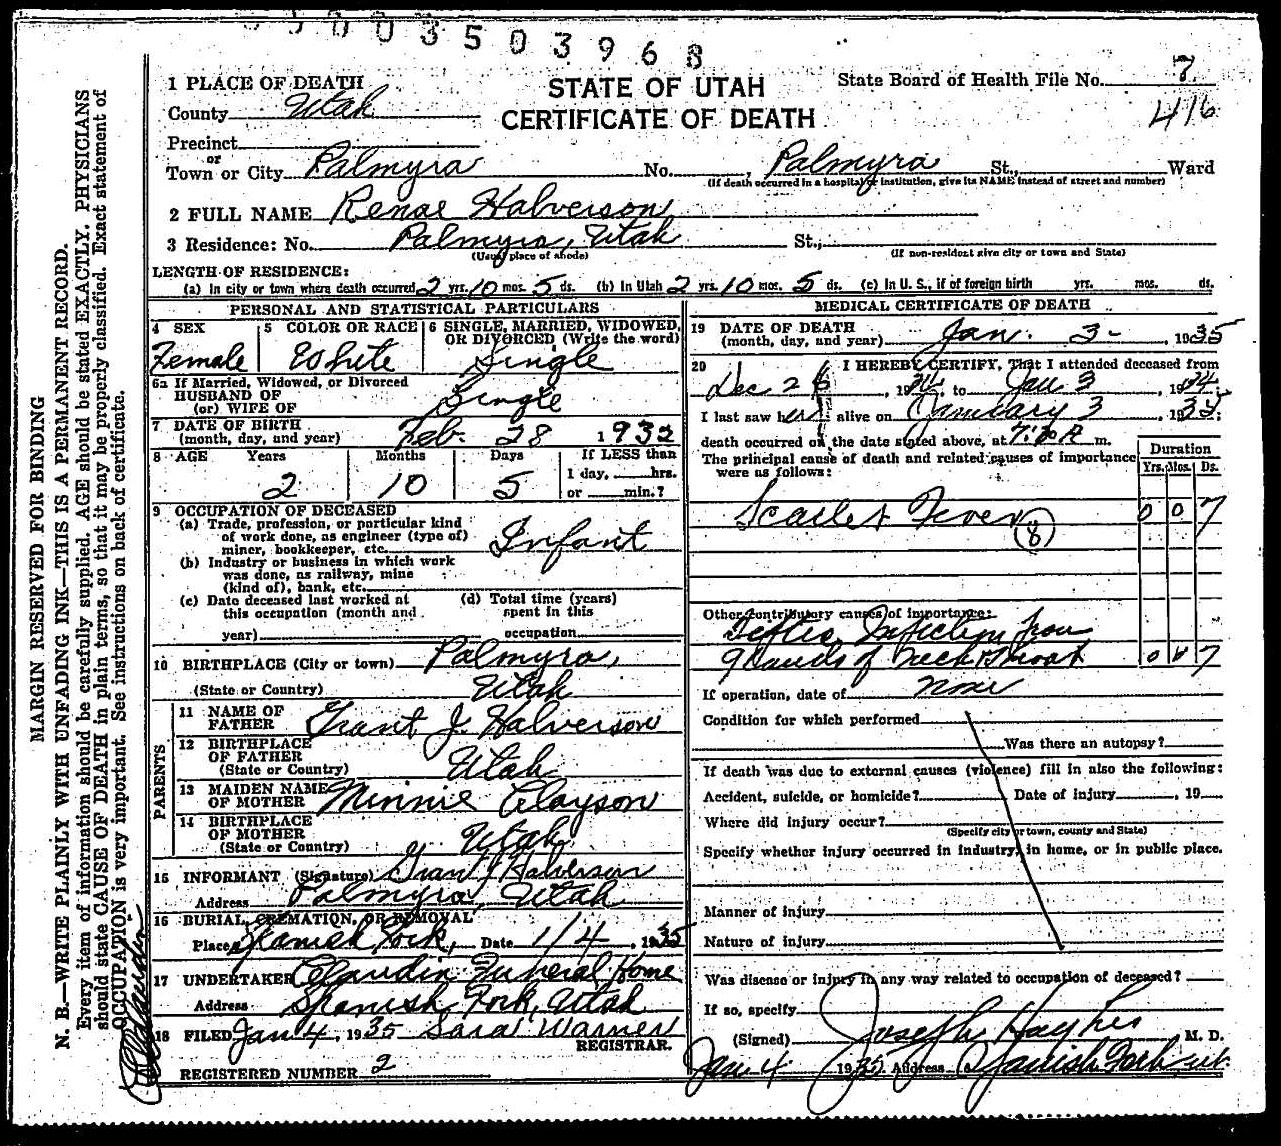 0003503968
1 PLACE OF DEATH
STATE OF UTAH
CERTIFICATE OF DEATH
State Board of Health File No. 7
416
County Utah
Precinct
or
Town or City Palmyra No. , Palmyra St., Ward
(If death occurred in a hospital or institution, give its NAME instead of street and number)
2 FULL NAME Renae Halverson
3 Residence: No. Palmyra, Utah St.,
(Usual place of abode) (If non-resident give city or town and State)
LENGTH OF RESIDENCE:
(a) In city or town where death occurred 2 yrs. 10 mos. 5 ds. (b) In Utah 2 yrs. 10 mos. 5 ds. (c) In U. S., if of foreign birth yrs. mos. ds.
PERSONAL AND STATISTICAL PARTICULARS
4 SEX 5 COLOR OR RACE 6 SINGLE, MARRIED, WIDOWED, OR DIVORCED (Write the word)
Female White Single
6a If Married, Widowed, or Divorced
HUSBAND OF
(or) WIFE OF Single
7 DATE OF BIRTH
(month, day, and year) Feb. 28 1932
8 AGE Years Months Days If LESS than
1 day, hrs.
or min.?
2 10 5
9 OCCUPATION OF DECEASED
(a) Trade, profession, or particular kind
of work done, as engineer (type of)
miner, bookkeeper, etc. Infant
(b) Industry or business in which work
was done, as railway, mine
(kind of), bank, etc.
(c) Date deceased last worked at
this occupation (month and
year)
(d) Total time (years)
spent in this
occupation
10 BIRTHPLACE (City or town) Palmyra,
(State or Country) Utah
PARENTS
11 NAME OF
FATHER Grant J. Halverson
12 BIRTHPLACE
OF FATHER
(State or Country) Utah
13 MAIDEN NAME
OF MOTHER Minnie Clayson
14 BIRTHPLACE
OF MOTHER
(State or Country) Utah
15 INFORMANT (Signature) Grant J Halverson
Address Palmyra, Utah
16 BURIAL, CREMATION, OR REMOVAL
Place Spanish Fork, Date 1/4, 1935
17 UNDERTAKER Claudin Funeral Home
Address Spanish Fork, Utah
18 FILED Jan 4, 1935 Sara Warner
REGISTRAR.
REGISTERED NUMBER 2
MEDICAL CERTIFICATE OF DEATH
19 DATE OF DEATH
(month, day, and year) Jan. 3- , 1935
20 I HEREBY CERTIFY, That I attended deceased from
Dec 26, 1934, to Jan 3, 1934
I last saw her alive on January 3, 1935;
death occurred on the date stated above, at m.
The principal cause of death and related causes of importance
were as follows:
Duration
Yrs. Mos. Ds.
Scarlet Fever 0 0 7
(8)
Other contributory causes of importance:
Septic Infection from
glands of neck & throat 0 0 7
If operation, date of none
Condition for which performed
Was there an autopsy?
If death was due to external causes (violence) fill in also the following:
Accident, suicide, or homicide? Date of injury , 19
Where did injury occur?
(Specify city or town, county and State)
Specify whether injury occurred in industry, in home, or in public place.
Manner of injury
Nature of injury
Was disease or injury in any way related to occupation of deceased?
If so, specify
(Signed) Joseph Hughes M. D.
Jan 4 1935 Address Spanish Fork Ut.
MARGIN RESERVED FOR BINDING
N. B.—WRITE PLAINLY WITH UNFADING INK—THIS IS A PERMANENT RECORD.
Every item of information should be carefully supplied. AGE should be stated EXACTLY. PHYSICIANS
should state CAUSE OF DEATH in plain terms, so that it may be properly classified. Exact statement of
OCCUPATION is very important. See instructions on back of certificate.